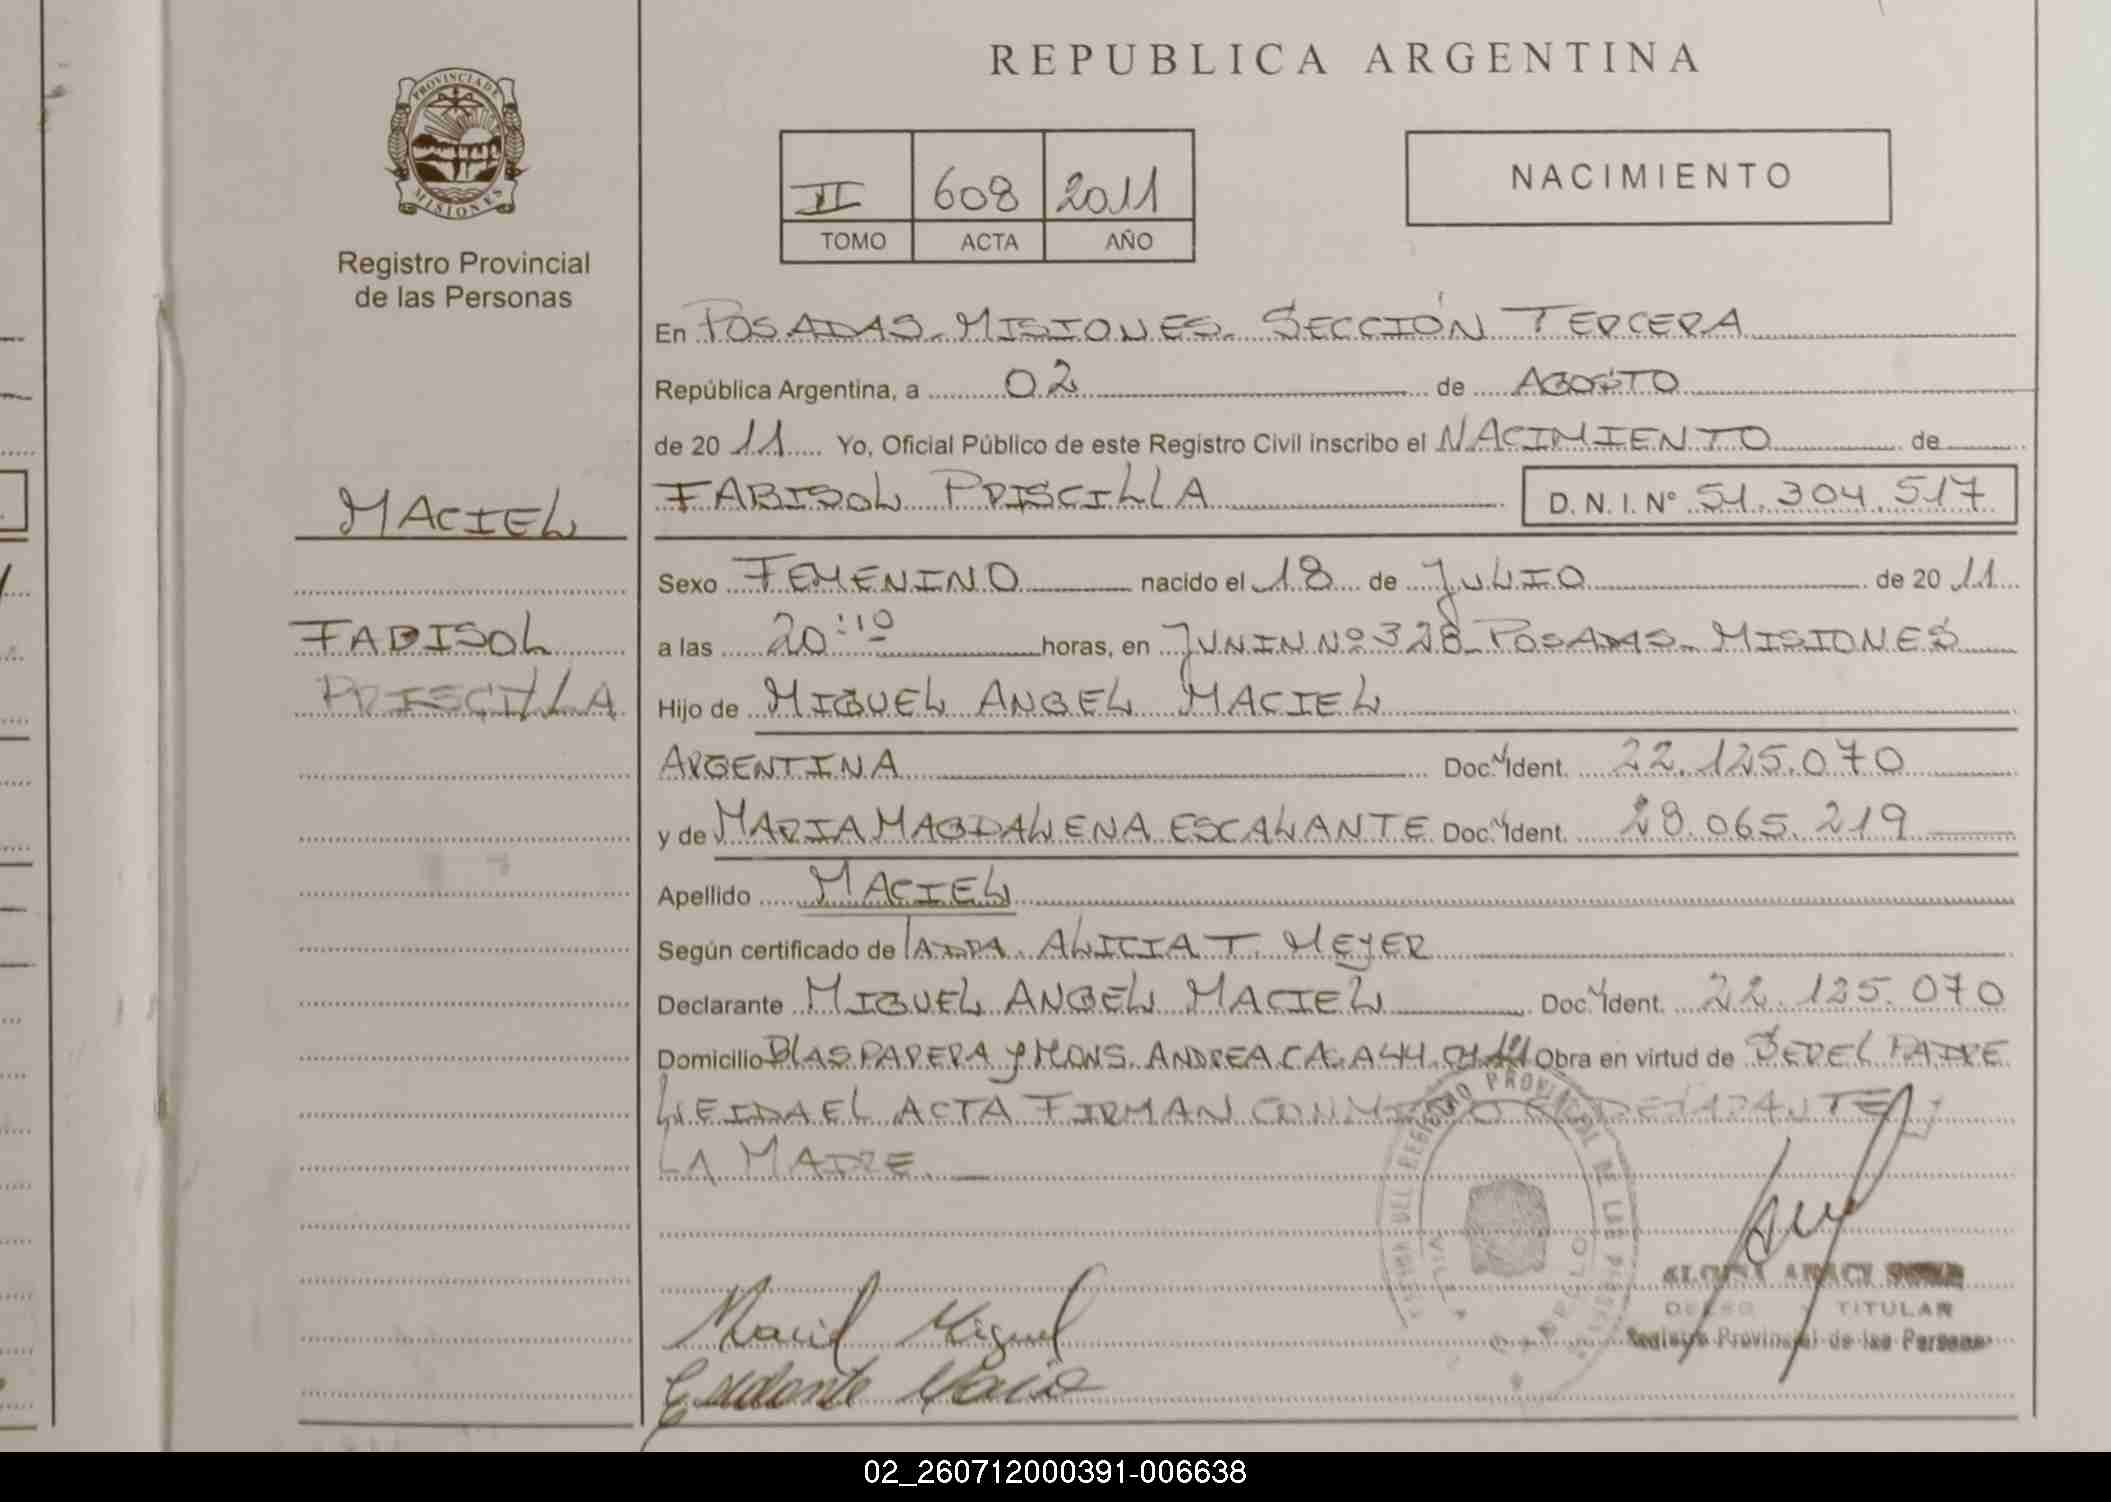 REPUBLICA ARGENTINA
PROVINCIA DE
MISIONES
Registro Provincial
de las Personas
II 608 2011
TOMO ACTA AÑO
NACIMIENTO
En POSADAS-MISIONES-SECCIÓN TERCERA
República Argentina, a 02 de AGOSTO
de 2011 Yo, Oficial Público de este Registro Civil inscribo el NACIMIENTO de
FABISOL PRISCILLA D. N. I. Nº 51.304.517
MACIEL
FABISOL
PRISCILLA
Sexo FEMENINO nacido el 18 de JULIO de 2011
a las 20:10 horas, en JUNIN Nº 328-POSADAS-MISIONES
Hijo de MIGUEL ANGEL MACIEL
ARGENTINA Doc. Ident. 22.125.070
y de MARIA MAGDALENA ESCALANTE Doc. Ident. 28.065.219
Apellido MACIEL
Según certificado de LA DRA. ALICIA T. MEYER
Declarante MIGUEL ANGEL MACIEL Doc. Ident. 22.125.070
Domicilio BLAS PARERA Y MONS. ANDREA CASA 44 Obra en virtud de SER EL PADRE
LEIDA EL ACTA FIRMAN CONMIGO EL DECLARANTE Y
LA MADRE.
REGISTRO PROVINCIAL DE LAS PERSONAS
TITULAR
Registro Provincial de las Personas
Maciel Miguel
Escalante Maria
02_260712000391-006638